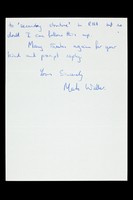 to 'secondary structure' in RNA and no
doubt I can follow this up.
Many thanks again for your
kind and prompt reply.
Yours Sincerely